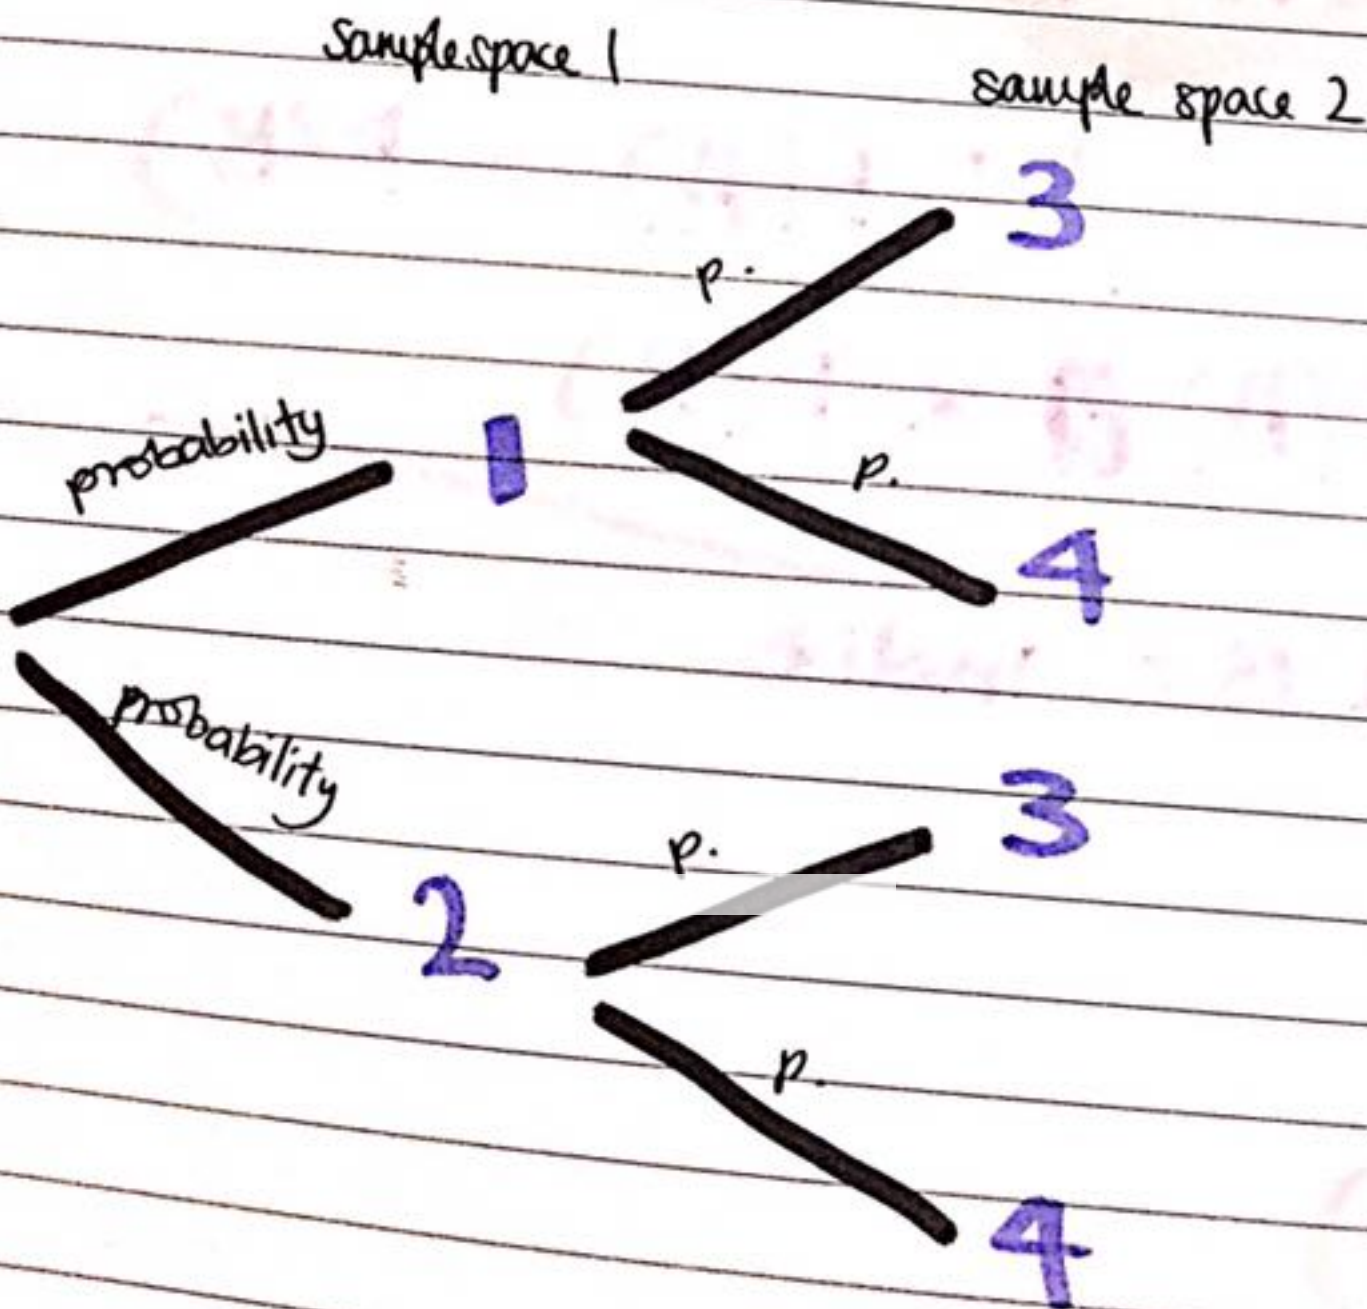 sample space 1
sample space 2
3
p.
probability
1
p.
4
probability
3
p.
2
p.
4